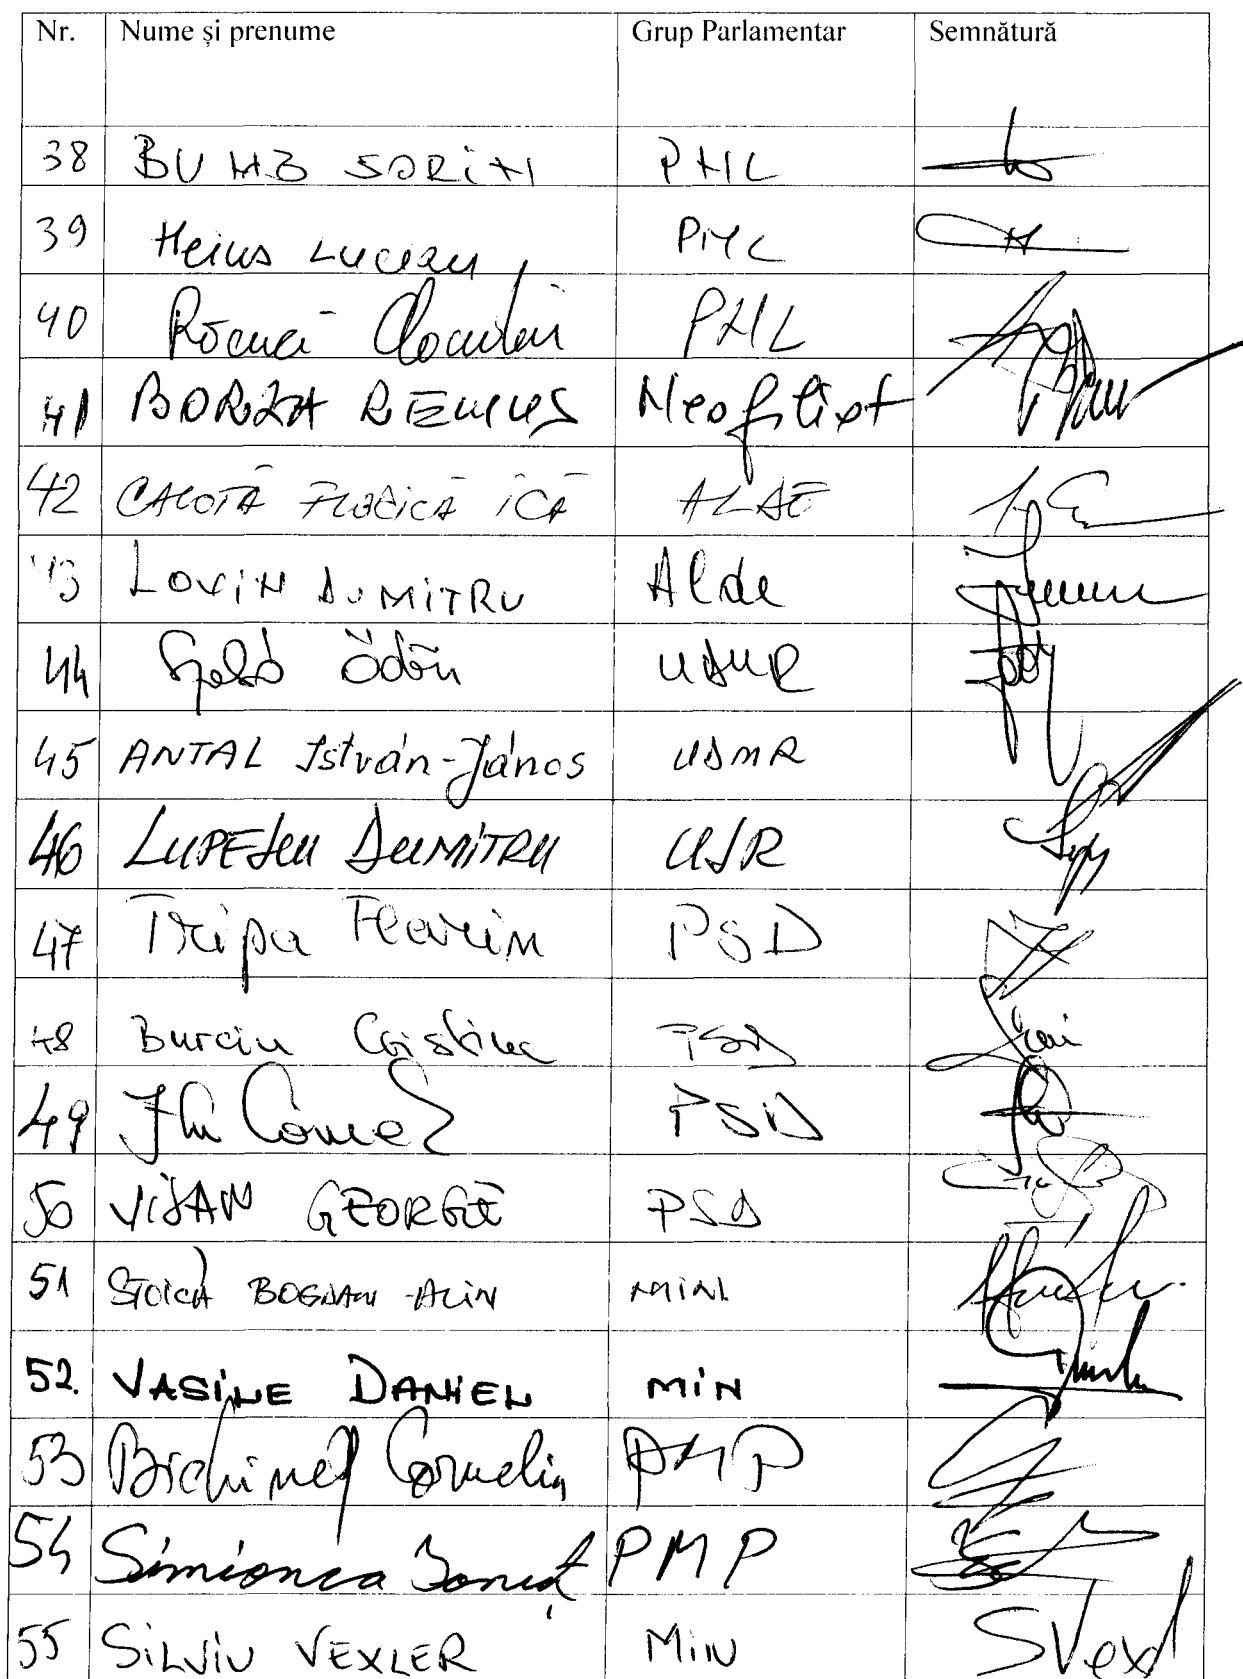 Nr. Nume și prenume Grup Parlamentar Semnătură
38 BUMB SORIN PNL
39 Heius Lucian PNL
40 PNL
41 BORZA REMUS Neafiliat
42 CALOTĂ FLORICĂ ICĂ ALDE
43 LOVIN DUMITRU Alde
44 Szabó Ödön UDMR
45 ANTAL István-János UDMR
46 LUPESCU DUMITRU USR
47 Tripa Florin PSD
48 Burciu Cristina PSD
49 PSD
50 VIȘAN GEORGE PSD
51 STOICA BOGDAN-ALIN MIN
52. VASILE DANIEL MIN
53 Bichineț Corneliu PMP
54 Simionca Ioniț PMP
55 SILVIU VEXLER MIN SVexl